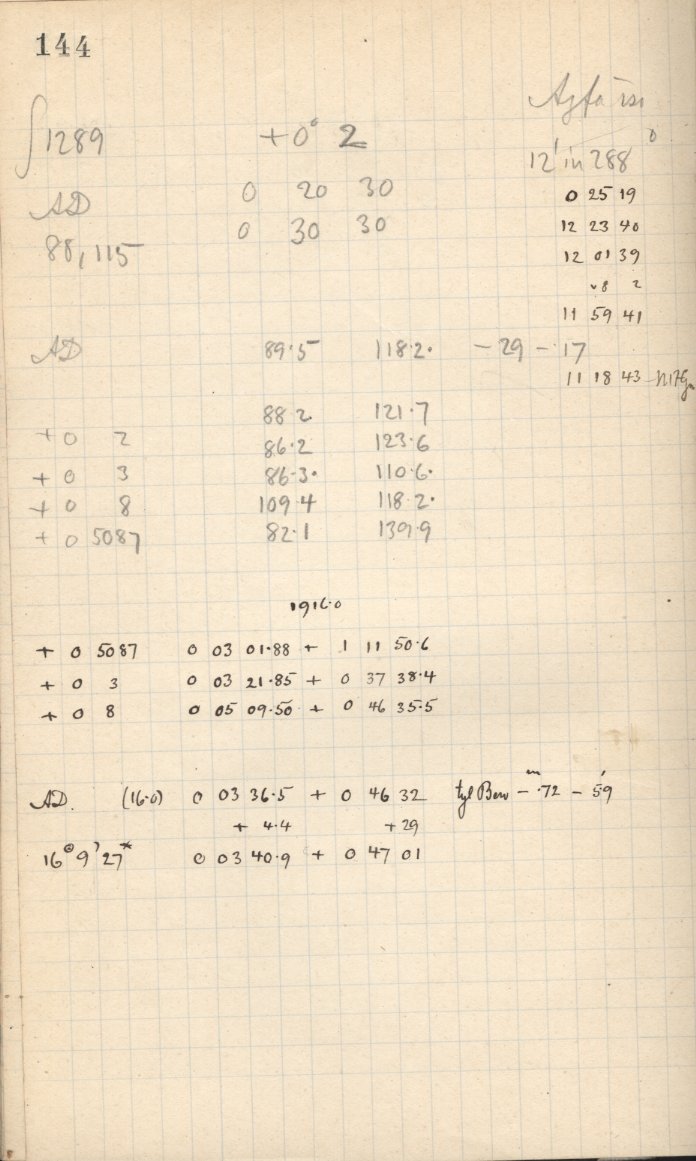 144
∫1289 +0° 2
12' in 288°
AD 0 20 30 0 25 19
88, 115 0 30 30 12 23 40
12 01 39
8 2
11 59 41
AD 89.5 118.2. - 29 - 17
11 18 43
88.2 121.7
+ 0 2 86.2 123.6
+ 0 3 86.3. 110.6.
+ 0 8 109.4 118.2.
+ 0 5087 82.1 139.9
1916.0
+ 0 5087 0 03 01.88 + 1 11 50.6
+ 0 3 0 03 21.85 + 0 37 38.4
+ 0 8 0 05 09.50 + 0 46 35.5
AD. (16.0) 0 03 36.5 + 0 46 32 tgl Bew - .72ᵐ - 59'
+ 4.4 + 29
16° 9' 27* 0 03 40.9 + 0 47 01